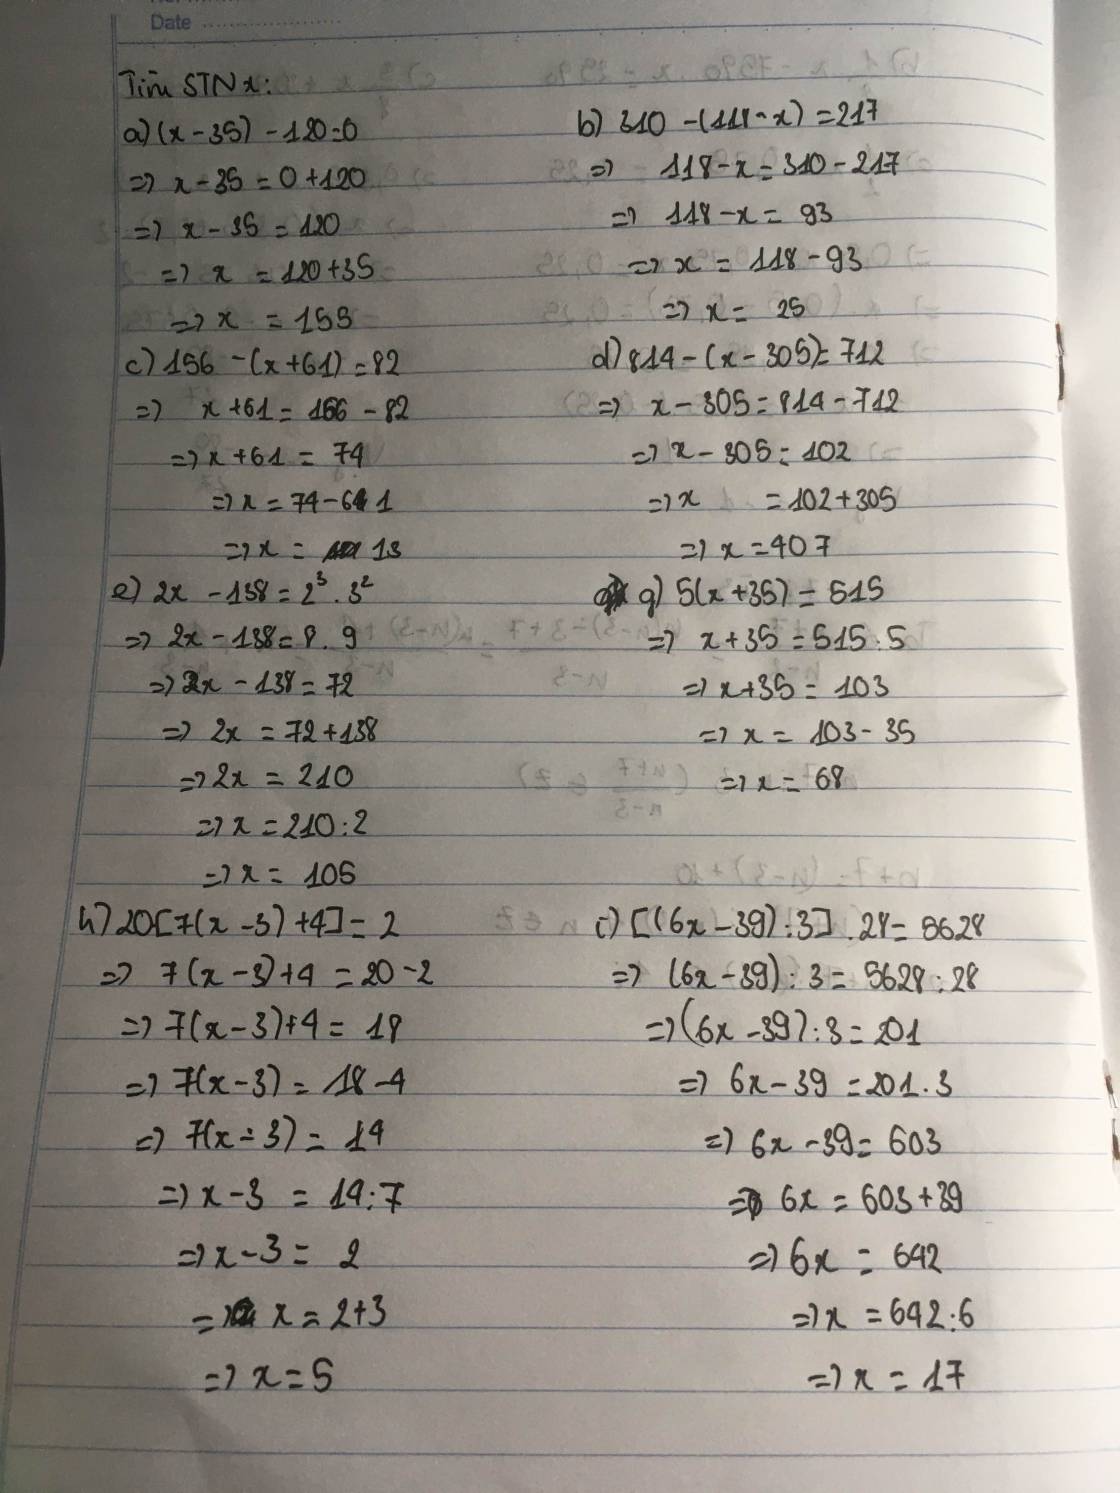 Date
Tìm STN x:
a) (x - 35) - 120 = 0
=> x - 35 = 0 + 120
=> x - 35 = 120
=> x = 120 + 35
=> x = 155
b) 310 - (118 - x) = 217
=> 118 - x = 310 - 217
=> 118 - x = 93
=> x = 118 - 93
=> x = 25
c) 156 - (x + 61) = 82
=> x + 61 = 156 - 82
=> x + 61 = 74
=> x = 74 - 61
=> x = 13
d) 814 - (x - 305) = 712
=> x - 305 = 814 - 712
=> x - 305 = 102
=> x = 102 + 305
=> x = 407
e) 2x - 138 = 2³ . 3²
=> 2x - 138 = 8 . 9
=> 2x - 138 = 72
=> 2x = 72 + 138
=> 2x = 210
=> x = 210 : 2
=> x = 105
g) 5(x + 35) = 515
=> x + 35 = 515 : 5
=> x + 35 = 103
=> x = 103 - 35
=> x = 68
h) 20 [7(x - 3) + 4] = 2
=> 7(x - 3) + 4 = 20 - 2
=> 7(x - 3) + 4 = 18
=> 7(x - 3) = 18 - 4
=> 7(x - 3) = 14
=> x - 3 = 14 : 7
=> x - 3 = 2
=> x = 2 + 3
=> x = 5
i) [(6x - 39) : 3] . 28 = 5628
=> (6x - 39) : 3 = 5628 : 28
=> (6x - 39) : 3 = 201
=> 6x - 39 = 201 . 3
=> 6x - 39 = 603
=> 6x = 603 + 39
=> 6x = 642
=> x = 642 : 6
=> x = 17